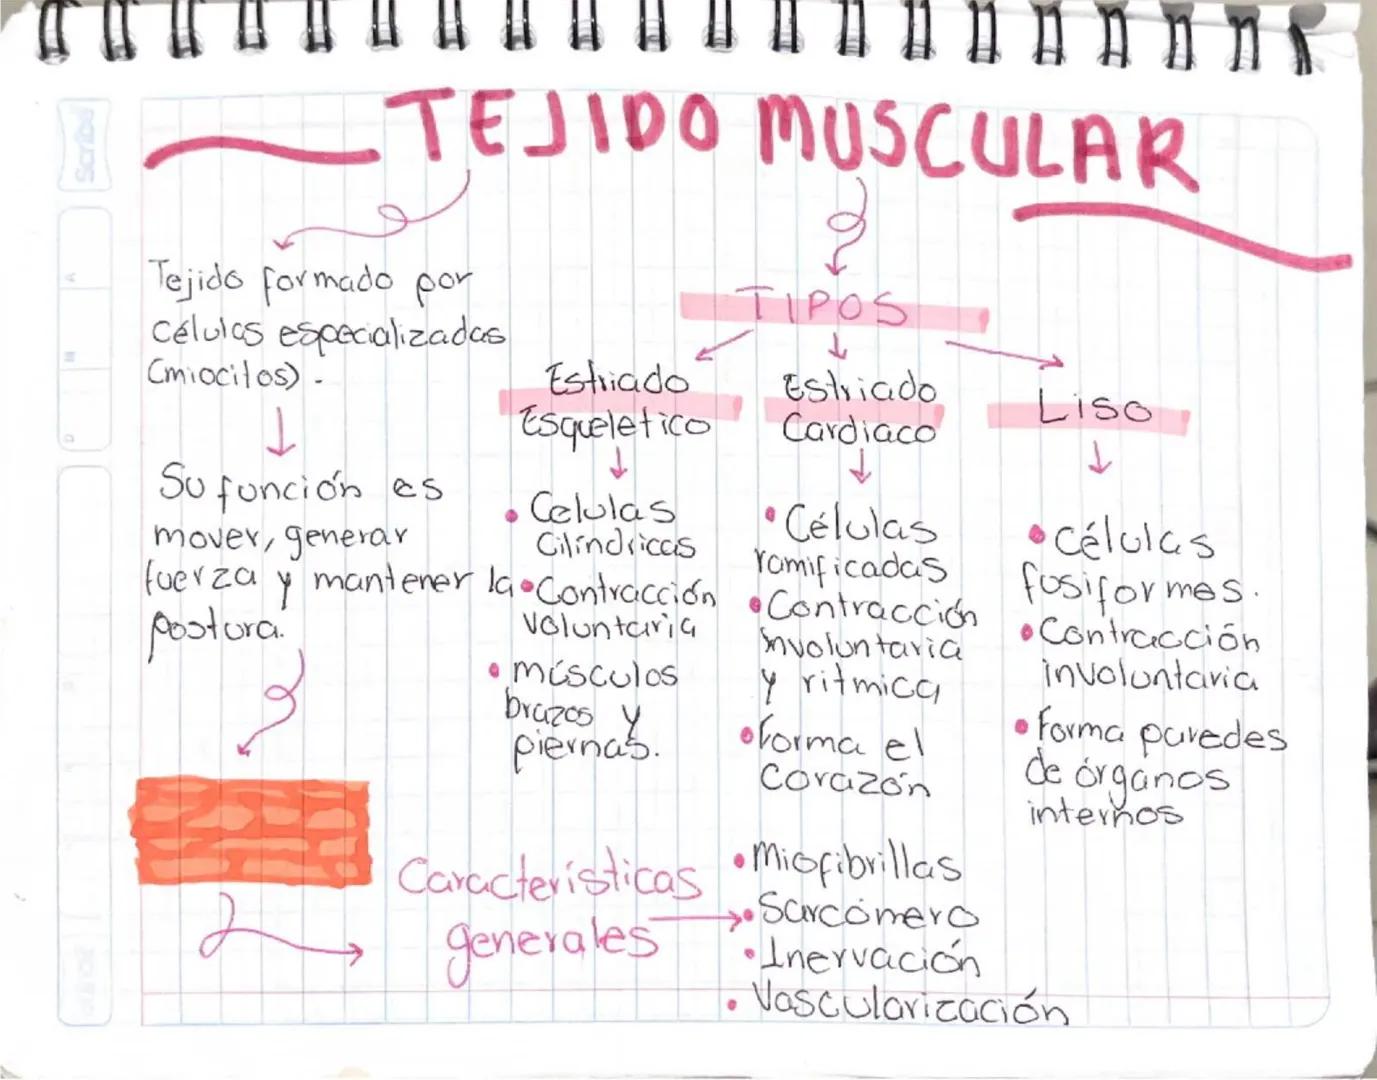 TEJIDO MUSCULAR
Scribe
Tejido formado por
células especializadas
(miocitos).
Su función es
mover, generar
fuerza y mantener la
postura.
TIPOS
Estriado
Esqueletico
• Celulas
Cilíndricas
• Contracción
voluntaria
• músculos
brazos y
piernas.
Estriado
Cardiaco
• Células
ramificadas
• Contracción
involuntaria
y ritmica
• Forma el
corazón
Liso
• Células
fusiformes.
• Contracción
involuntaria
• Forma paredes
de órganos
internos
Características
generales
• Miofibrillas
• Sarcómero
• Inervación
• Vascularización